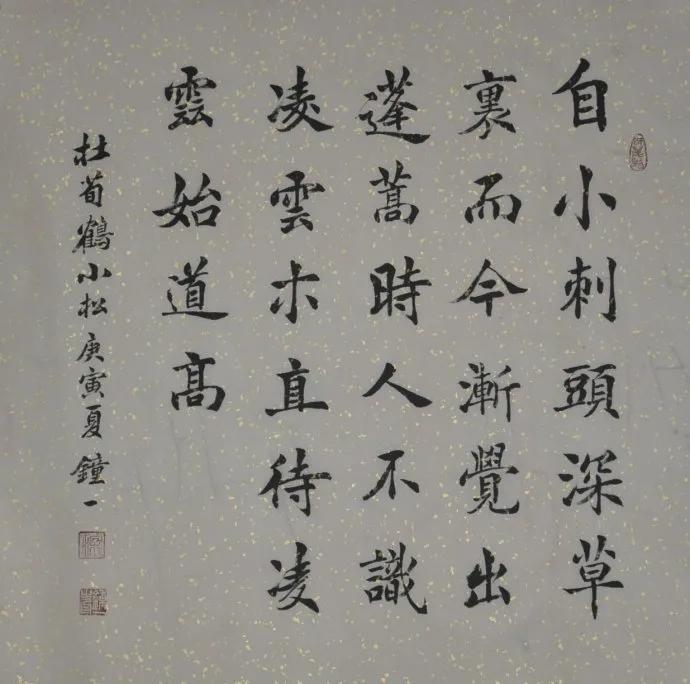 自小刺頭深草
裏而今漸覺出
蓬蒿時人不識
凌雲木直待凌
雲始道高
杜荀鶴小松庚寅夏鐘一